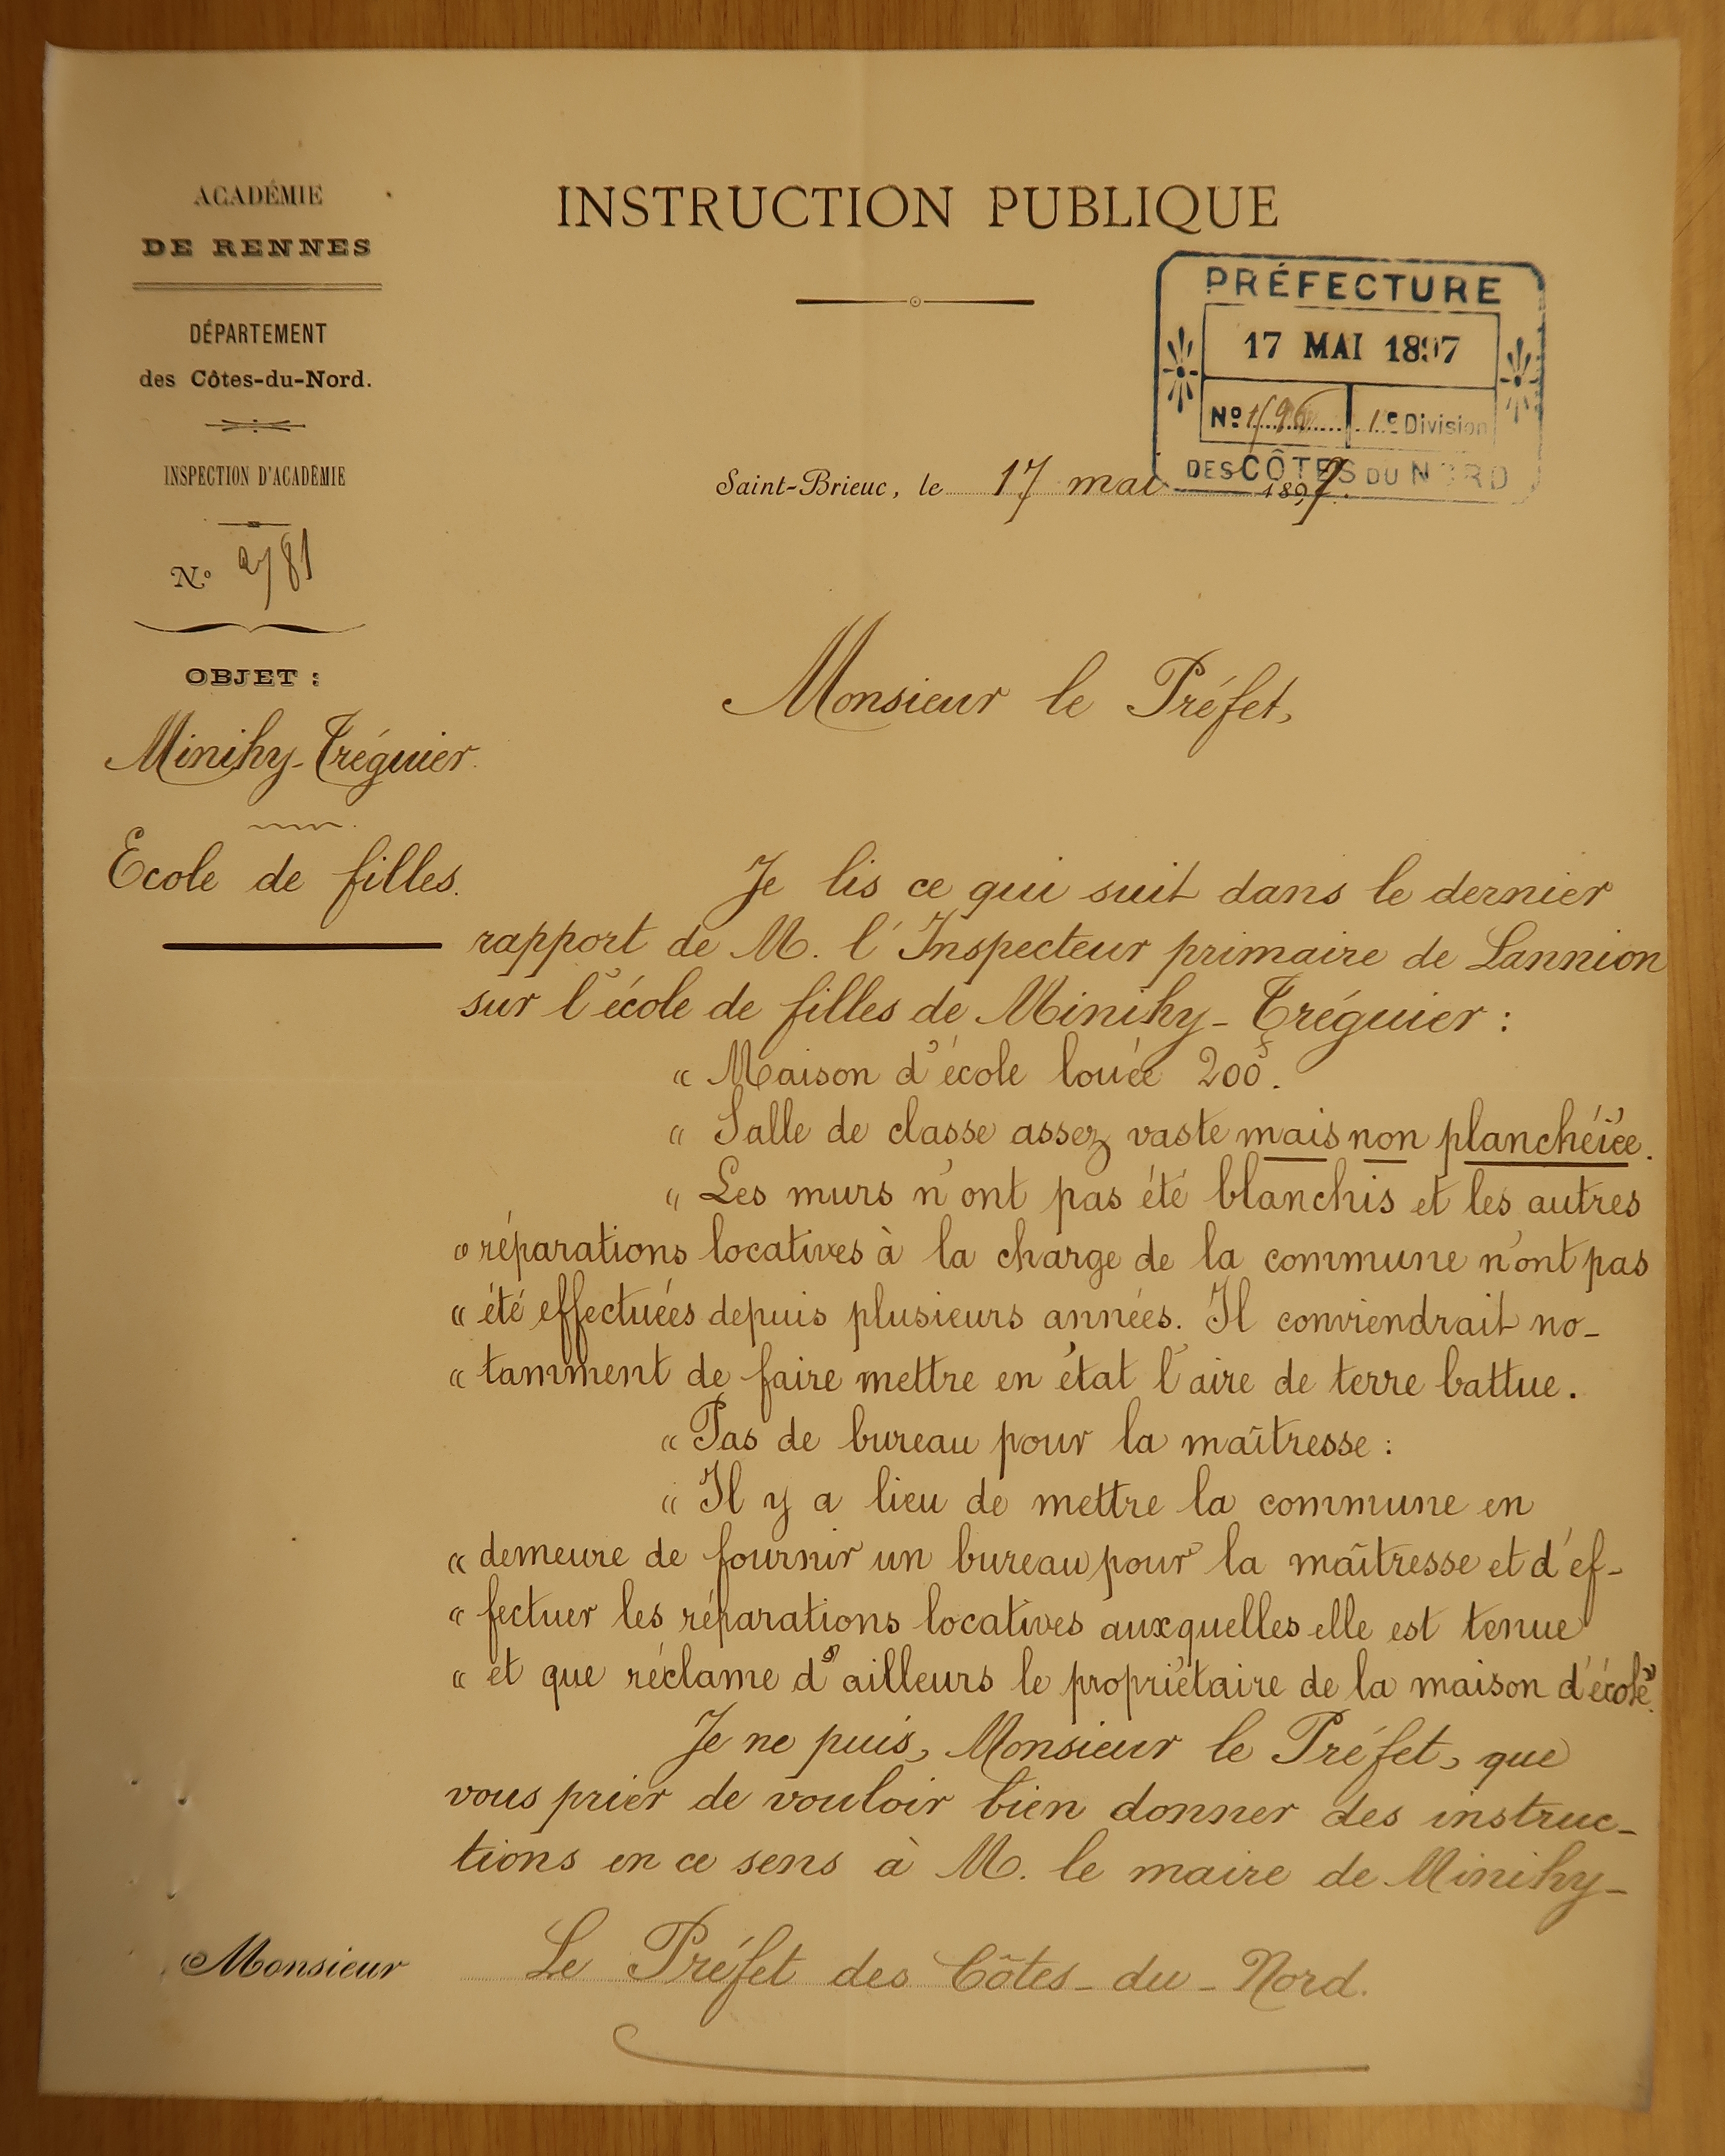 ACADÉMIE
DE RENNES
DÉPARTEMENT
des Côtes-du-Nord.
INSPECTION D'ACADÉMIE
N.º 2781
OBJET :
Minihy-Tréguier.
Ecole de filles.
INSTRUCTION PUBLIQUE
PRÉFECTURE
17 MAI 1897
Nº 1e Division
DES CÔTES DU NORD
Saint-Brieuc, le 17 mai 1897.
Monsieur le Préfet,
Je lis ce qui suit dans le dernier
rapport de M. l'Inspecteur primaire de Lannion
sur l'école de filles de Minihy-Tréguier :
« Maison d'école louée 200f.
« Salle de classe assez vaste mais non planchéiée.
« Les murs n'ont pas été blanchis et les autres
« réparations locatives à la charge de la commune n'ont pas
« été effectuées depuis plusieurs années. Il conviendrait no-
« tamment de faire mettre en état l'aire de terre battue.
« Pas de bureau pour la maîtresse :
« Il y a lieu de mettre la commune en
« demeure de fournir un bureau pour la maîtresse et d'ef-
« fectuer les réparations locatives auxquelles elle est tenue
« et que réclame d'ailleurs le propriétaire de la maison d'école ».
Je ne puis, Monsieur le Préfet, que
vous prier de vouloir bien donner des instruc-
tions en ce sens à M. le maire de Minihy-
Monsieur Le Préfet des Côtes-du-Nord.